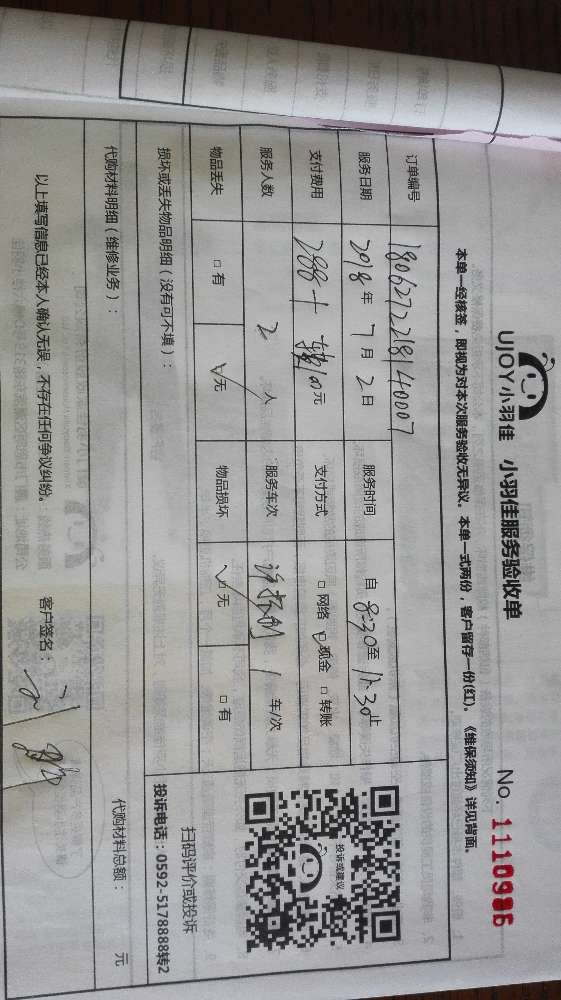 UJOY小羽佳 小羽佳服务验收单
No. 11109986
本单一经核签，即视为对本次服务验收无异议。本单一式两份，客户留存一份(红)。《维保须知》详见背面。
订单编号 180627221814007
服务时间 自 8:30 至 11:30 止
服务日期 2018 年 7 月 2 日
支付费用 288 + 100 元
支付方式 □ 网络 □ 现金 □ 转账
服务人数 2 人
服务车次 1 车/次
物品丢失 □ 有 □ 无
物品损坏 □ 无 □ 有
损坏或丢失物品明细（没有可不填）：
投诉或建议
扫码评价或投诉
投诉电话：0592-5178888转2
代购材料明细（维修业务）：
代购材料总额： 元
以上填写信息已经本人确认无误，不存在任何争议纠纷。
客户签名：